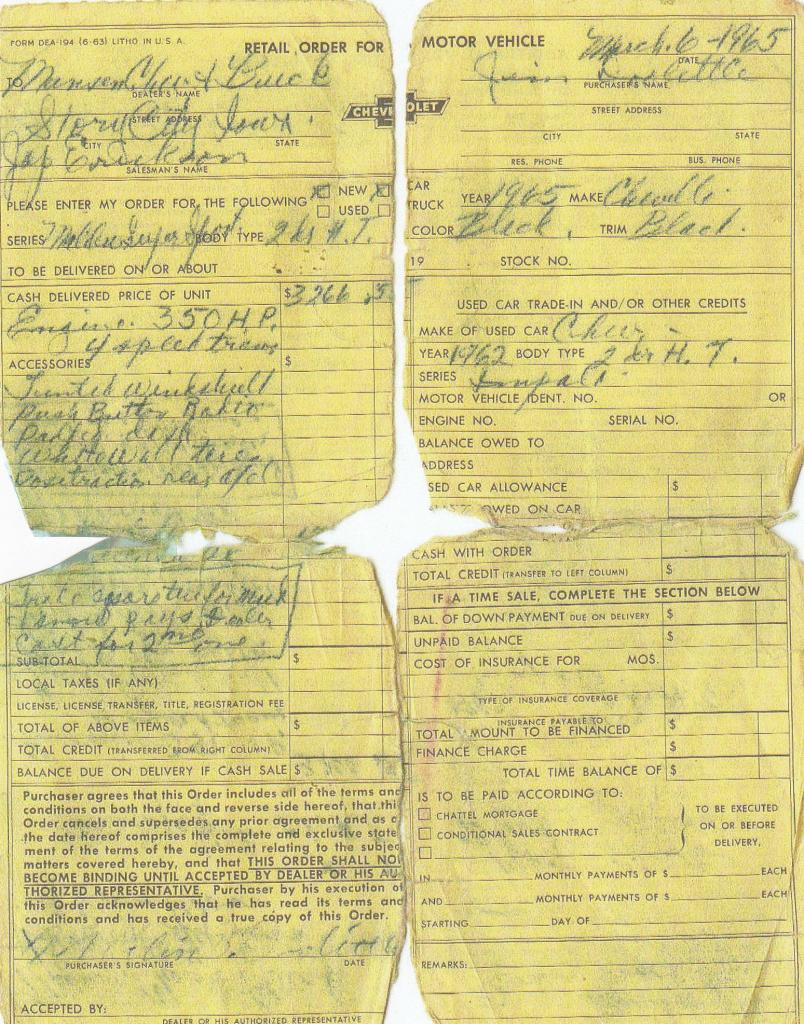 FORM DEA-194 (6-63) LITHO IN U.S.A.
RETAIL ORDER FOR MOTOR VEHICLE
March 6-1965
DATE
TO Chev & Buick
DEALER'S NAME
Jim Doolittle
PURCHASER'S NAME
CHEVROLET
Story City Iowa.
STREET ADDRESS
CITY STATE
STREET ADDRESS
CITY STATE
Erickson
SALESMAN'S NAME
RES. PHONE BUS. PHONE
PLEASE ENTER MY ORDER FOR THE FOLLOWING
X NEW X CAR
USED TRUCK
YEAR 1965 MAKE Chevelle
SERIES Malibu Super Sport BODY TYPE 2 dr H.T.
COLOR Black, TRIM Black.
TO BE DELIVERED ON OR ABOUT 19 STOCK NO.
CASH DELIVERED PRICE OF UNIT $3266.
Engine. 350 H.P.
4 speed trans
ACCESSORIES $
Tinted Windshield
Push Button Radio
Padded dash
White Wall tires
Posittraction rear
SUB-TOTAL $
LOCAL TAXES (IF ANY)
LICENSE, LICENSE TRANSFER, TITLE, REGISTRATION FEE
TOTAL OF ABOVE ITEMS $
TOTAL CREDIT (TRANSFERRED FROM RIGHT COLUMN)
BALANCE DUE ON DELIVERY IF CASH SALE $
Purchaser agrees that this Order includes all of the terms and
conditions on both the face and reverse side hereof, that thi
Order cancels and supersedes any prior agreement and as o
the date hereof comprises the complete and exclusive state
ment of the terms of the agreement relating to the subjec
matters covered hereby, and that THIS ORDER SHALL NO
BECOME BINDING UNTIL ACCEPTED BY DEALER OR HIS AU
THORIZED REPRESENTATIVE. Purchaser by his execution of
this Order acknowledges that he has read its terms and
conditions and has received a true copy of this Order.
PURCHASER'S SIGNATURE DATE
ACCEPTED BY:
DEALER OR HIS AUTHORIZED REPRESENTATIVE
USED CAR TRADE-IN AND/OR OTHER CREDITS
MAKE OF USED CAR Chev-
YEAR 1962 BODY TYPE 2 dr H.T.
SERIES Impala
MOTOR VEHICLE IDENT. NO. OR
ENGINE NO. SERIAL NO.
BALANCE OWED TO
ADDRESS
SED CAR ALLOWANCE $
OWED ON CAR
CASH WITH ORDER
TOTAL CREDIT (TRANSFER TO LEFT COLUMN) $
IF A TIME SALE, COMPLETE THE SECTION BELOW
BAL. OF DOWN PAYMENT DUE ON DELIVERY $
UNPAID BALANCE $
COST OF INSURANCE FOR MOS.
TYPE OF INSURANCE COVERAGE
INSURANCE PAYABLE TO
TOTAL MOUNT TO BE FINANCED $
FINANCE CHARGE $
TOTAL TIME BALANCE OF $
IS TO BE PAID ACCORDING TO:
CHATTEL MORTGAGE
CONDITIONAL SALES CONTRACT
TO BE EXECUTED
ON OR BEFORE
DELIVERY,
IN MONTHLY PAYMENTS OF $ EACH
AND MONTHLY PAYMENTS OF $ EACH
STARTING DAY OF
REMARKS: